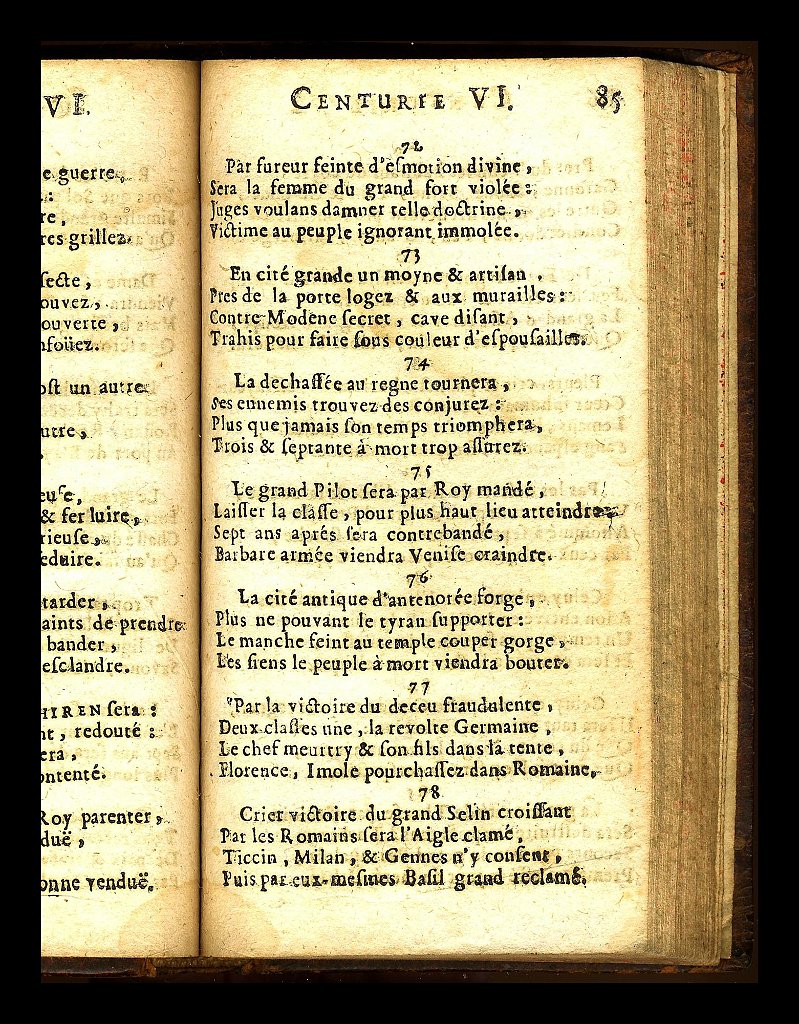 VI.
e guerre,
:
re,
res grillez.
secte,
ouvez,
ouverte,
nfoüez.
ost un autre
utre,
,
euse,
& fer luire,
rieuse,
eduire.
tarder,
aints de prendre
bander,
esclandre.
HIREN sera :
nt, redouté :
era,
ontenté.
Roy parenter,
duë,
onne venduë.
CENTURIE VI. 85
72
Par fureur feinte d'esmotion divine,
Sera la femme du grand fort violée :
Juges voulans damner telle doctrine,
Victime au peuple ignorant immolée.
73
En cité grande un moyne & artisan,
Pres de la porte logez & aux murailles :
Contre Modene secret, cave disant,
Trahis pour faire sous couleur d'espousailles.
74
La dechassée au regne tournera,
Ses ennemis trouvez des conjurez :
Plus que jamais son temps triomphera,
Trois & septante à mort trop assurez.
75
Le grand Pilot sera par Roy mandé,
Laisser la classe, pour plus haut lieu atteindre,
Sept ans aprés sera contrebandé,
Barbare armée viendra Venise craindre.
76
La cité antique d'antenorée forge,
Plus ne pouvant le tyran supporter :
Le manche feint au temple couper gorge,
Les siens le peuple à mort viendra bouter.
77
Par la victoire du deceu fraudulente,
Deux classes une, la revolte Germaine,
Le chef meurtry & son fils dans la tente,
Florence, Imole pourchassez dans Romaine.
78
Crier victoire du grand Selin croissant
Par les Romains sera l'Aigle clamé,
Ticcin, Milan, & Gennes n'y consent,
Puis par eux-mesmes Basil grand reclamé.